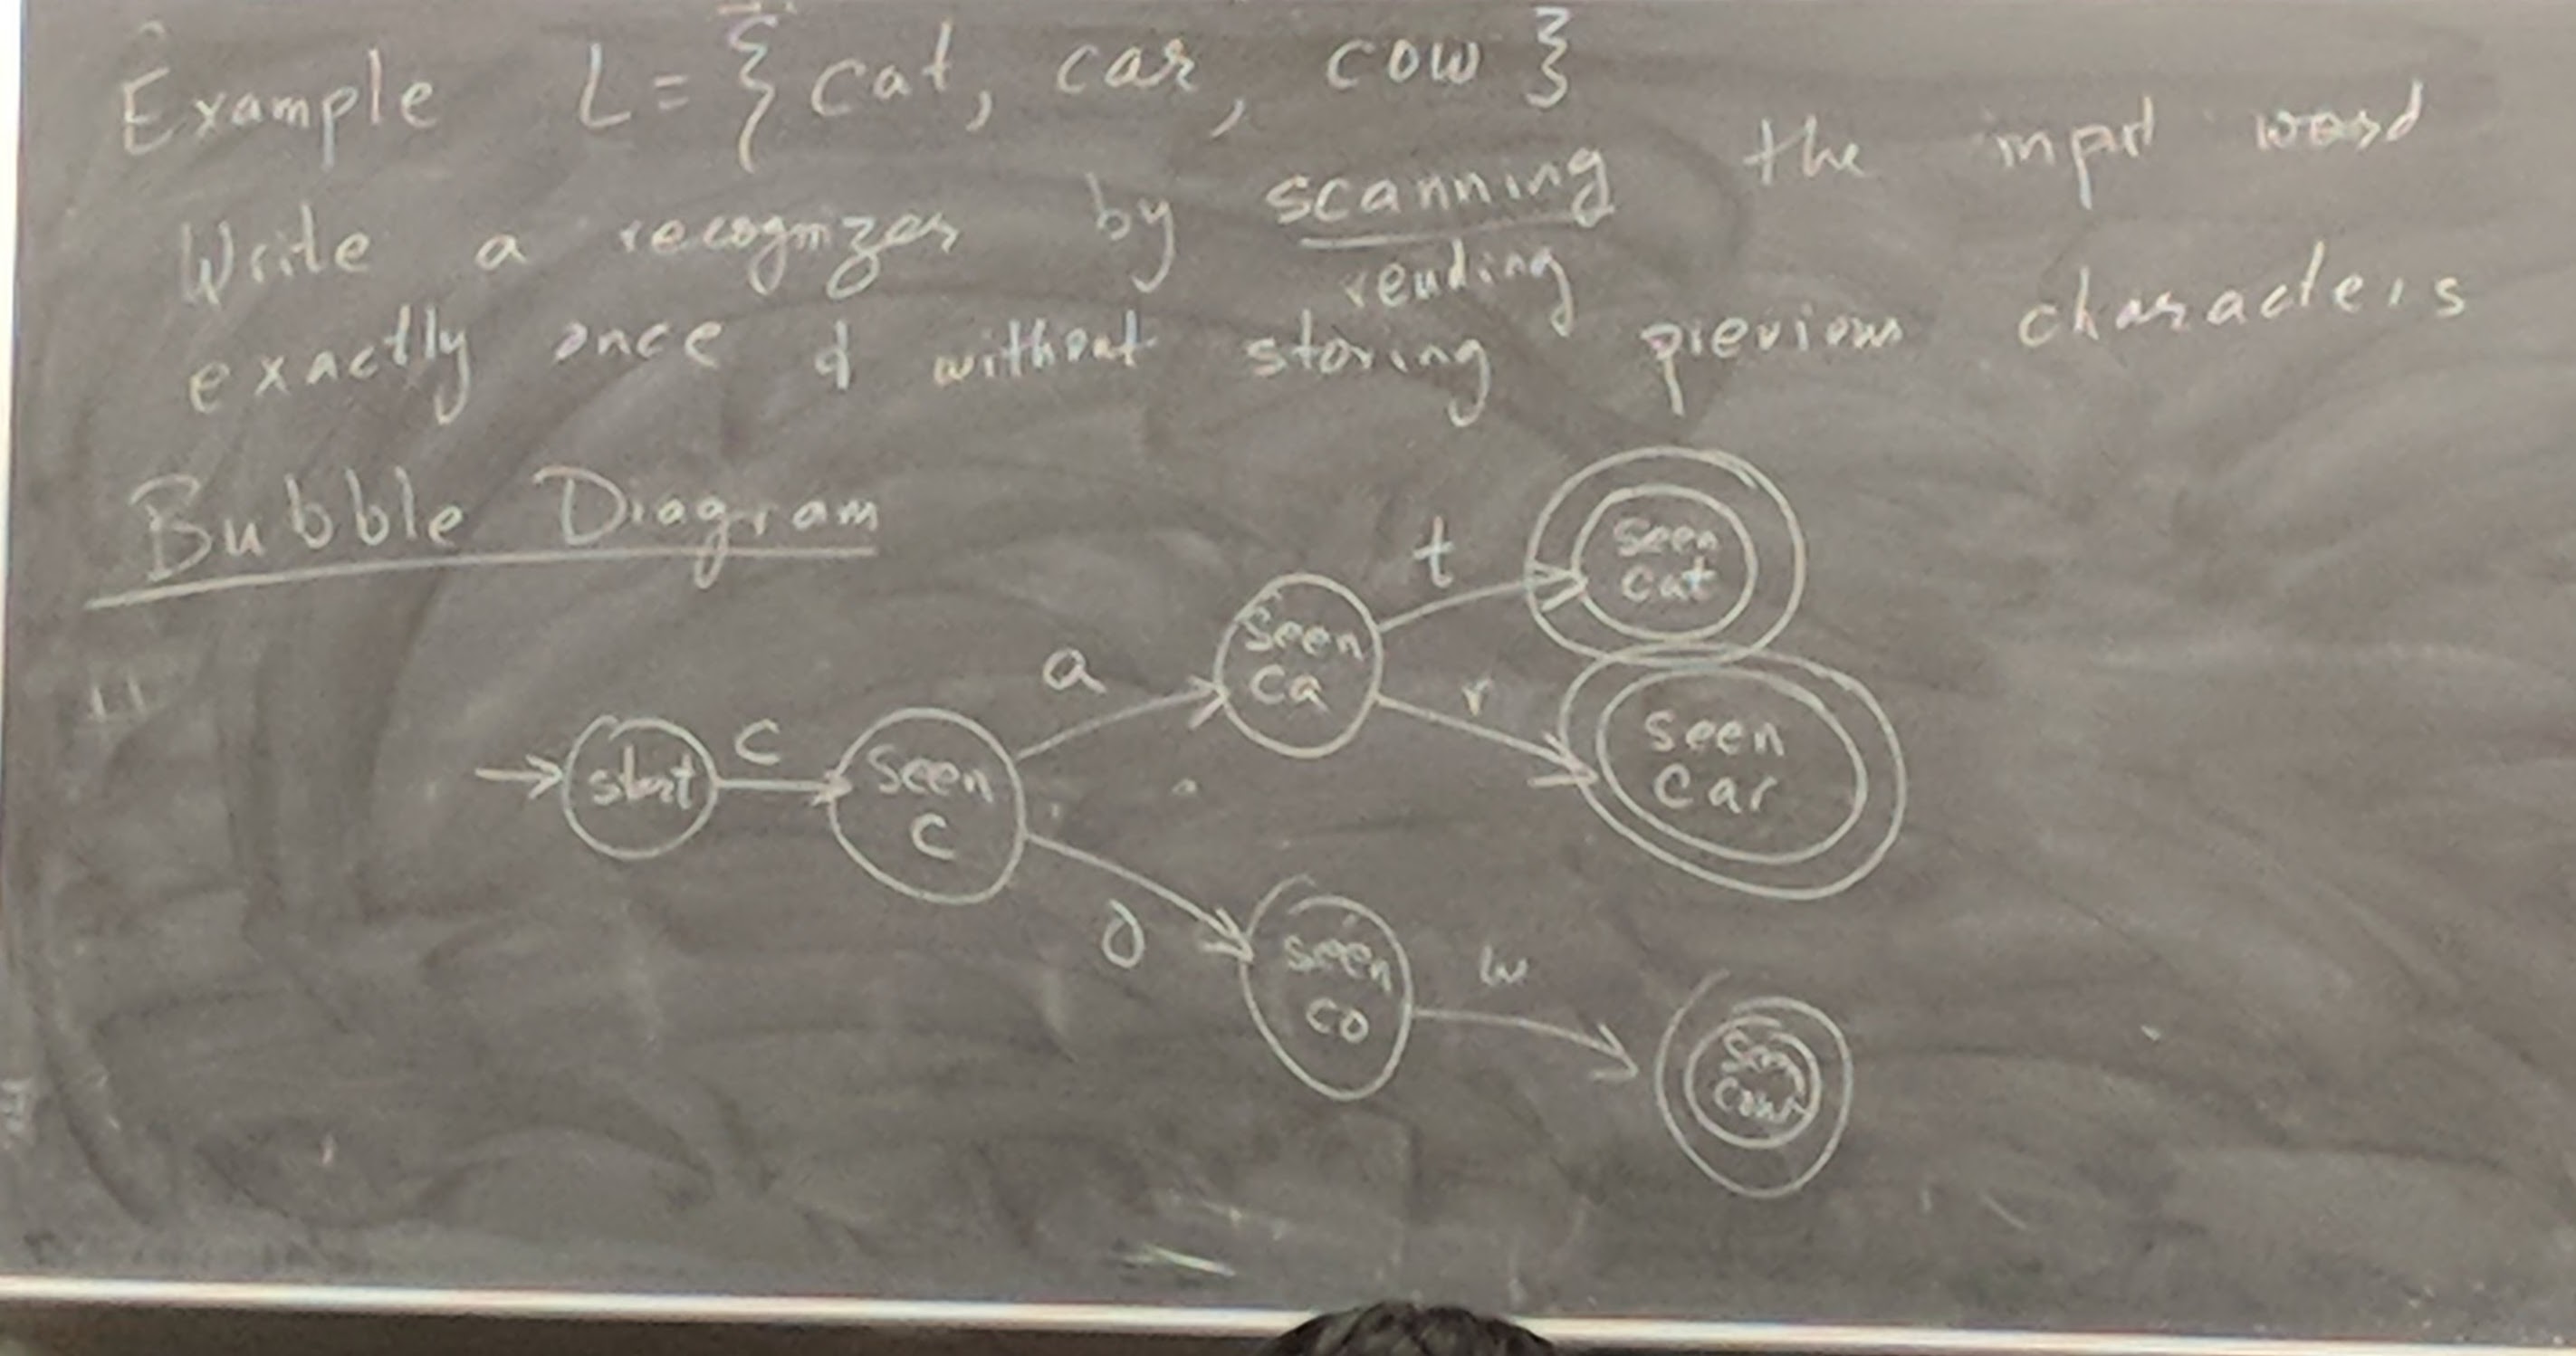 Example L = { cat, car, cow }
Write a recognizer by scanning the input word
reading
exactly once & without storing previous characters
Bubble Diagram
t
seen
cat
a
seen
ca
r
seen
car
start
c
seen
c
o
seen
co
w
seen
cow